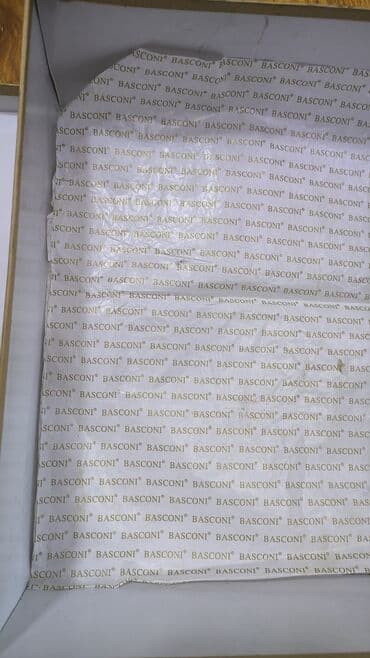 BASCONI® BASCONI® BASCONI® BASCONI® BASCONI®
BASCONI® BASCONI® BASCONI® BASCONI® BASCONI®
BASCONI® BASCONI® BASCONI® BASCONI® BASCONI®
BASCONI® BASCONI® BASCONI® BASCONI® BASCONI®
BASCONI® BASCONI® BASCONI® BASCONI® BASCONI®
BASCONI® BASCONI® BASCONI® BASCONI® BASCONI®
BASCONI® BASCONI® BASCONI® BASCONI® BASCONI®
BASCONI® BASCONI® BASCONI® BASCONI® BASCONI®
BASCONI® BASCONI® BASCONI® BASCONI® BASCONI®
BASCONI® BASCONI® BASCONI® BASCONI® BASCONI®
BASCONI® BASCONI® BASCONI® BASCONI® BASCONI®
BASCONI® BASCONI® BASCONI® BASCONI® BASCONI®
BASCONI® BASCONI® BASCONI® BASCONI® BASCONI®
BASCONI® BASCONI® BASCONI® BASCONI® BASCONI®
BASCONI® BASCONI® BASCONI® BASCONI® BASCONI®
BASCONI® BASCONI® BASCONI® BASCONI® BASCONI®
BASCONI® BASCONI® BASCONI® BASCONI® BASCONI®
BASCONI® BASCONI® BASCONI® BASCONI® BASCONI®
BASCONI® BASCONI® BASCONI® BASCONI® BASCONI®
BASCONI® BASCONI® BASCONI® BASCONI® BASCONI®
BASCONI® BASCONI® BASCONI® BASCONI® BASCONI®
BASCONI® BASCONI® BASCONI® BASCONI® BASCONI®
BASCONI® BASCONI® BASCONI® BASCONI® BASCONI®
BASCONI® BASCONI® BASCONI® BASCONI® BASCONI®
BASCONI® BASCONI® BASCONI® BASCONI® BASCONI®
BASCONI® BASCONI® BASCONI® BASCONI® BASCONI®
BASCONI® BASCONI® BASCONI® BASCONI® BASCONI®
BASCONI® BASCONI® BASCONI® BASCONI®